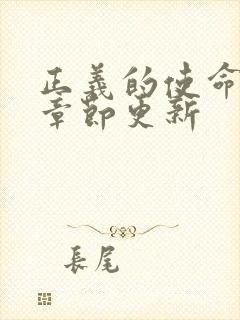 正義的使命
章節更新
長尾